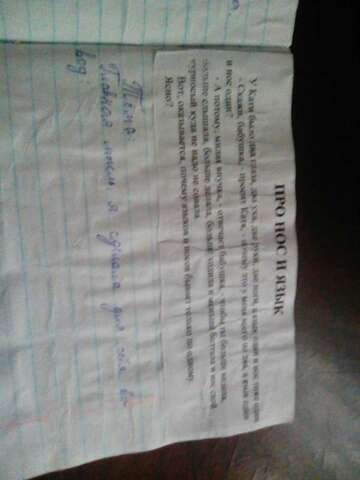 ПРО НОС И ЯЗЫК
У Кати было два глаза, два уха, две руки, две ноги, а язык один и нос тоже один.
- Скажи, бабушка, - просит Катя, - почему это у меня всего по два, а язык один
и нос один?
- А потому, милая внучка, - отвечает бабушка, - чтобы ты больше видела,
больше слышала, больше делала, больше ходила и меньше болтала и нос свой
курносый куда не надо не совала.
Вот, оказывается, почему языков и носов бывает только по одному.
Ясно?
Тема:
Главная я сделала для себя вы-
вод: